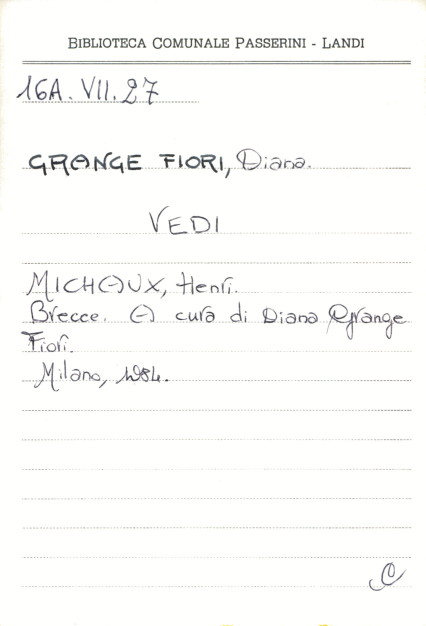 BIBLIOTECA COMUNALE PASSERINI - LANDI
16A. VII. 27
GRANGE FIORI, Diana.
VEDI
MICHAUX, Henri.
Brecce. A cura di Diana Grange
Fiori.
Milano, 1984.